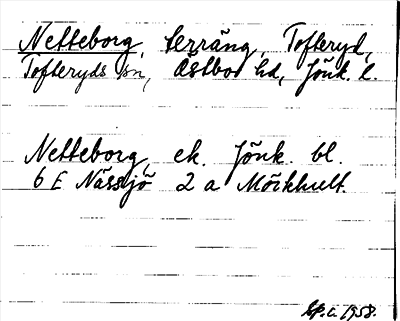 Netteborg, terräng, Tofteryd,
Tofteryds sn, Östbo hd, Jönk. l.
Netteborg ek. Jönk. bl.
6 E Nässjö 2 a Möckhult
1958.